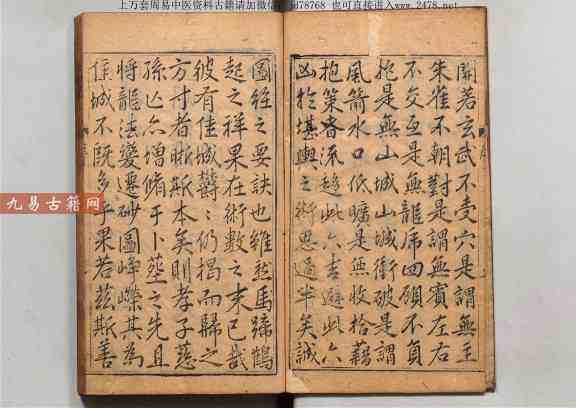 上万套周易中医资料古籍请加微信 78768 也可直接进入www.2478.net
開若玄武不受穴是謂無主
朱雀不朝對是謂無賓左右
不交互是無龍虎回顧不負
抱是無山城山城衝破是謂
風箭水口低曠是無收拾藉
抱策各流趨此六吉避此六
凶扵堪輿之術思過半矣誠
圖經之要訣也雖然馬蹄鶴
起之祥果在術數之末已哉
彼有佳城欝〻仍揭而歸之
方寸者晰斯本矣則孝子慈
孫亡亦增脩于卜塟之先且
將龍法變遷砂圖峰嶸其為
佳城不既多乎果若茲斯善
九易古籍网